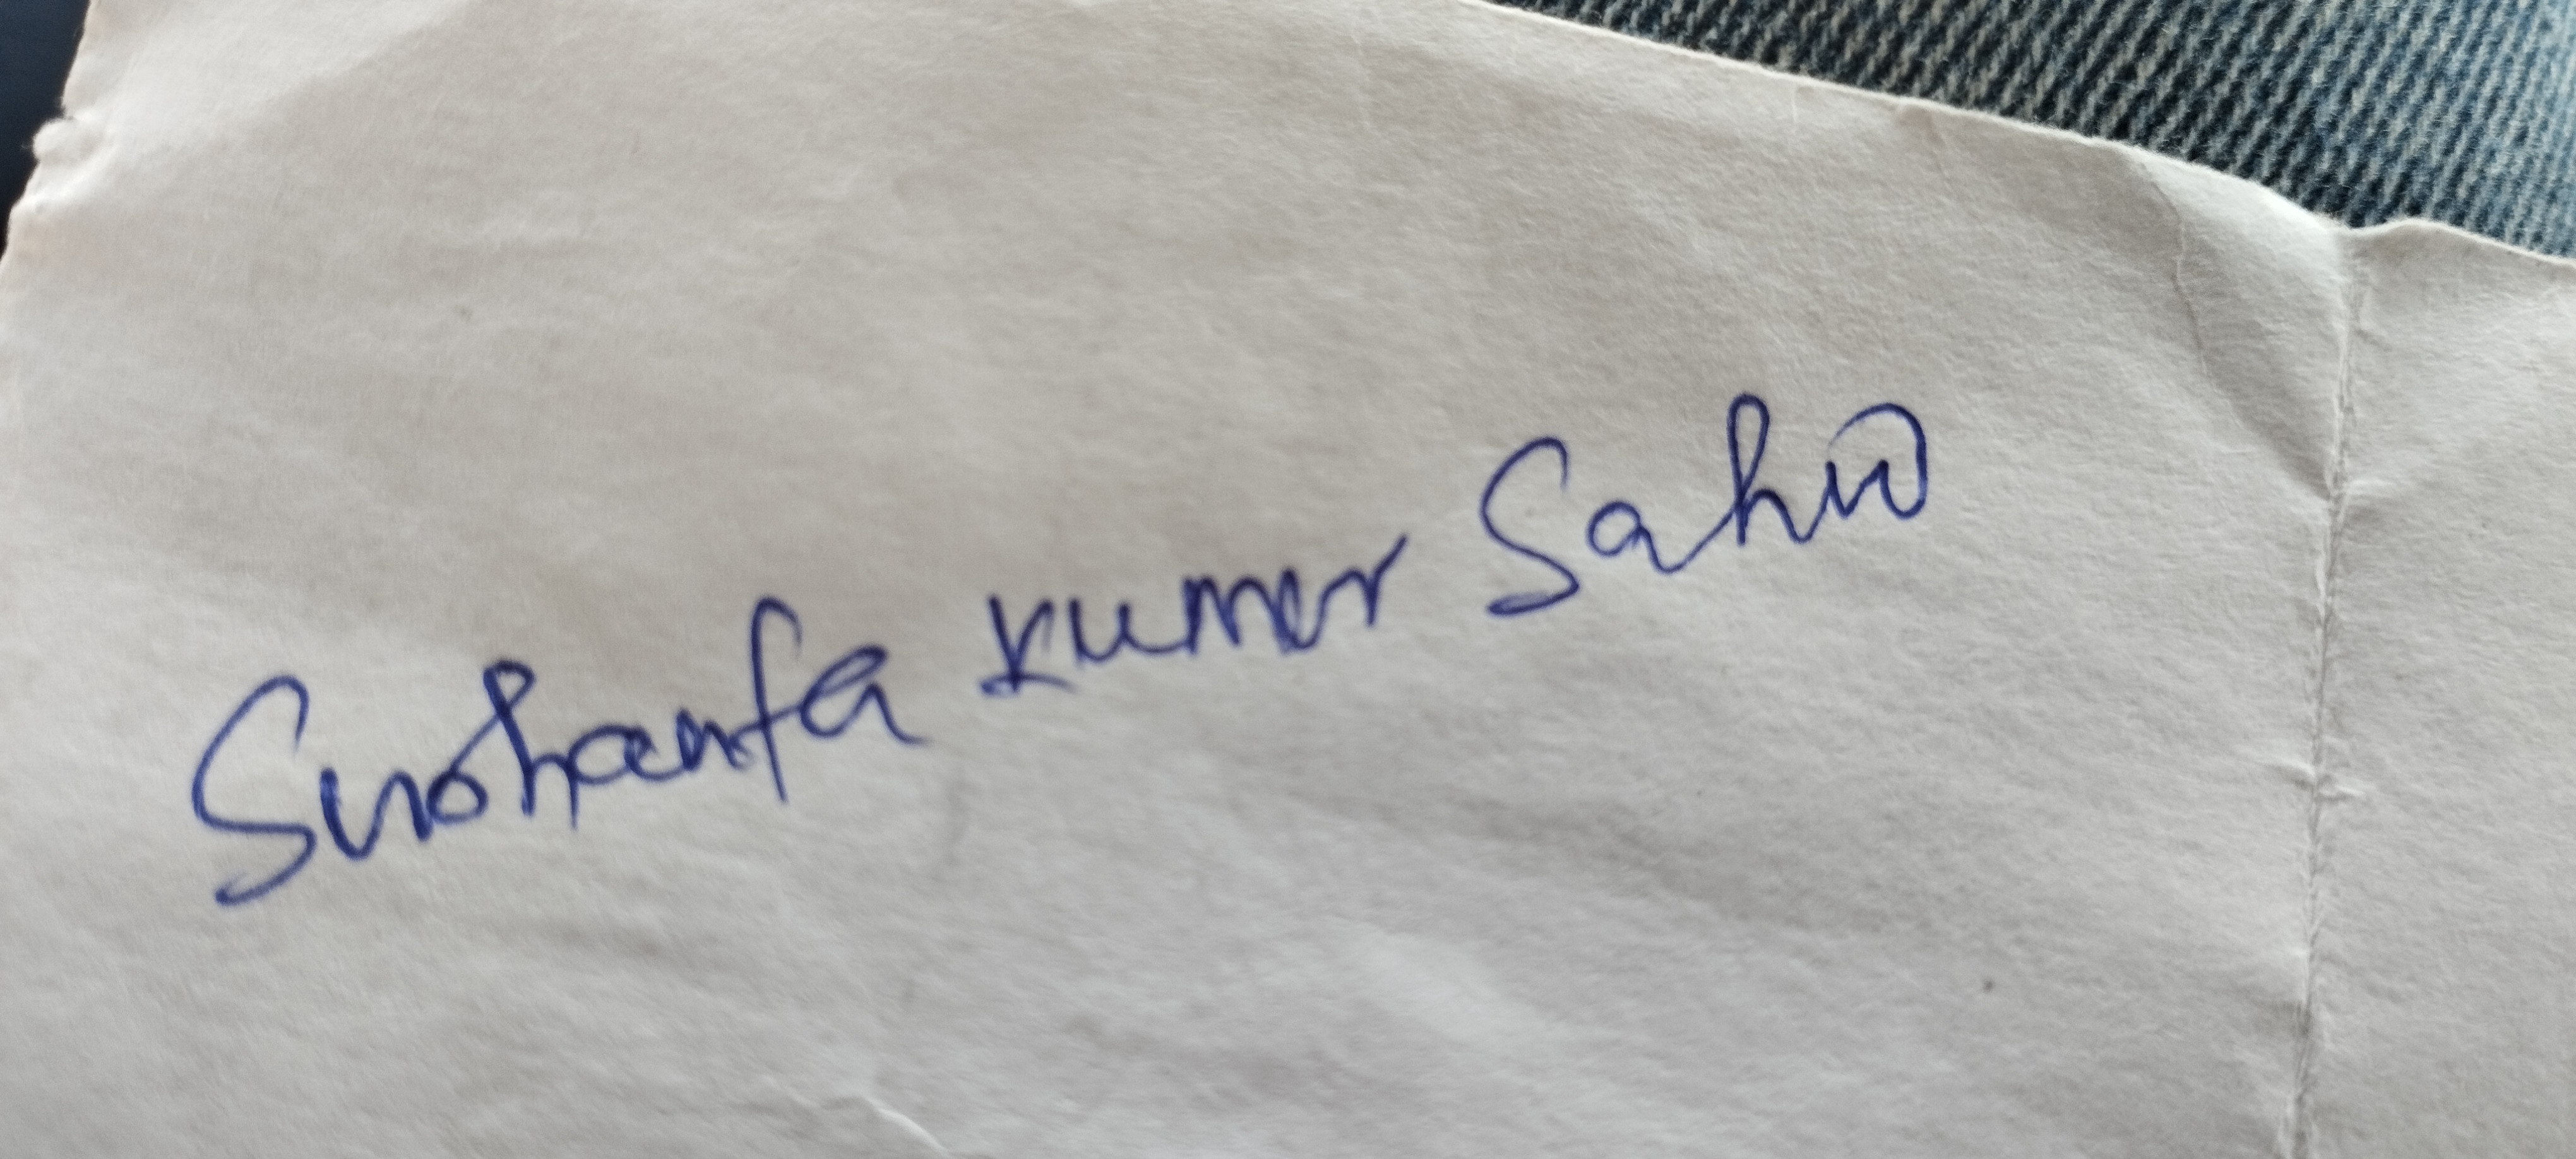 Sushanta kumar Sahu